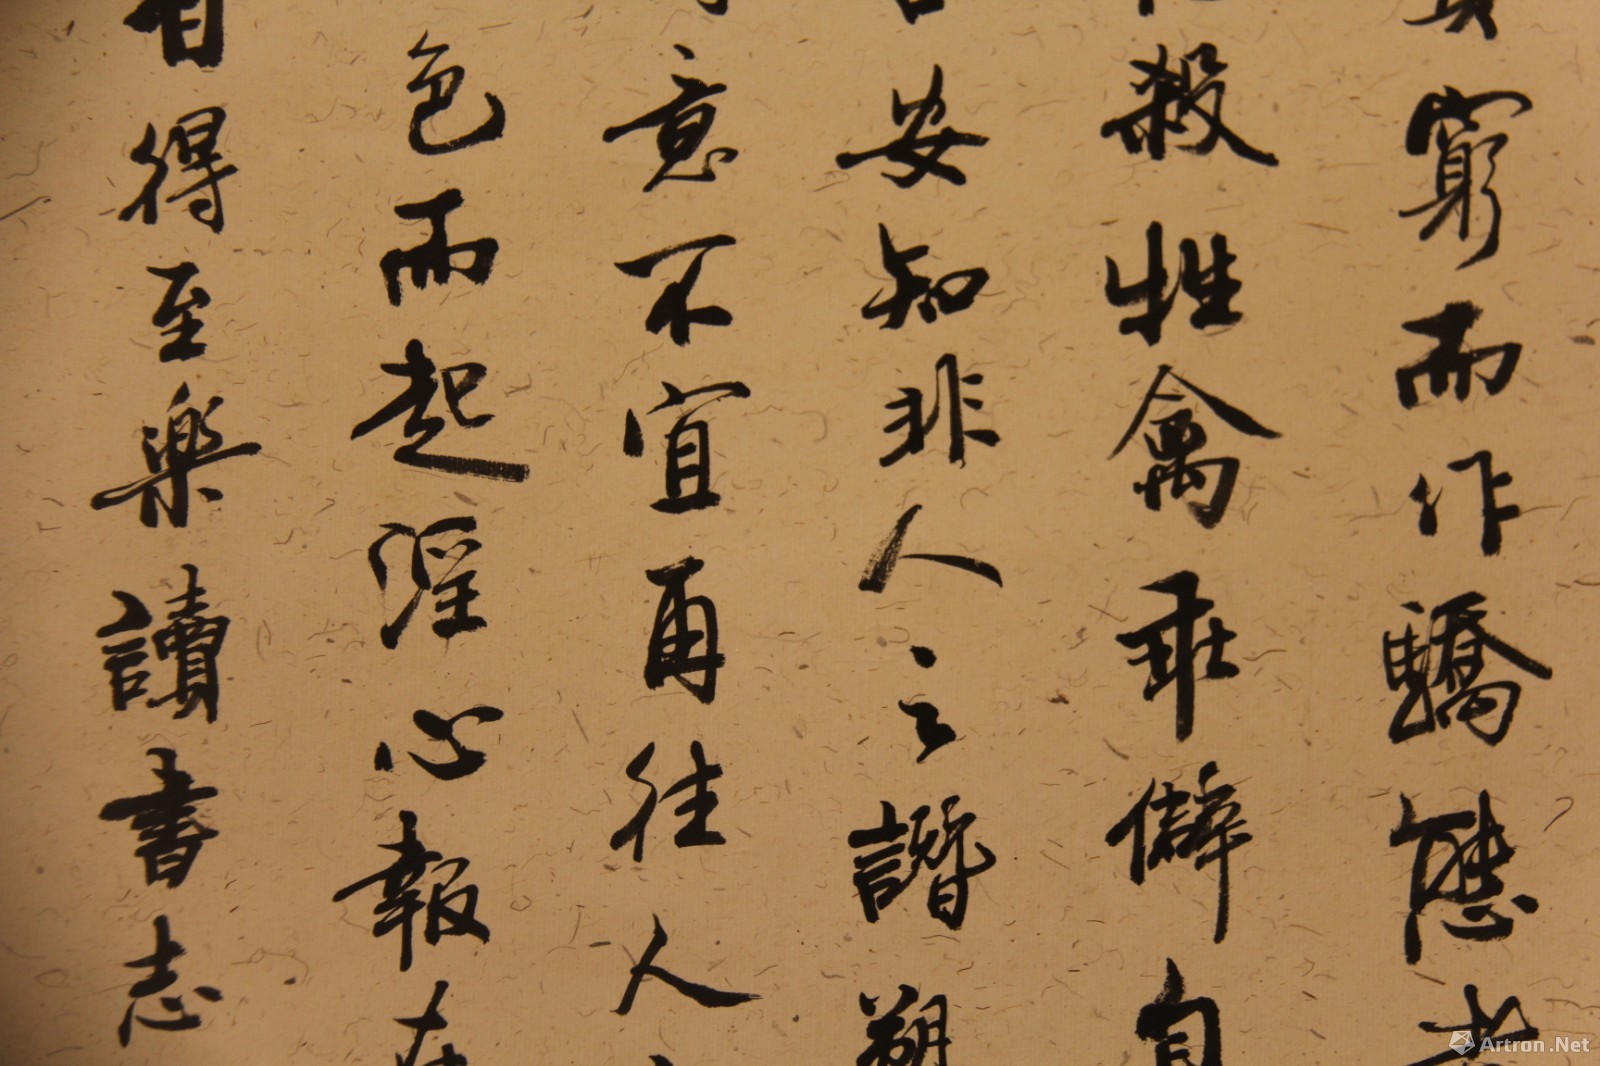 窮而作驕態者
殺牲禽乖僻自
安知非人之譖朔
意不宜再往人
色而起淫心報在
得至樂讀書志
Artron.Net